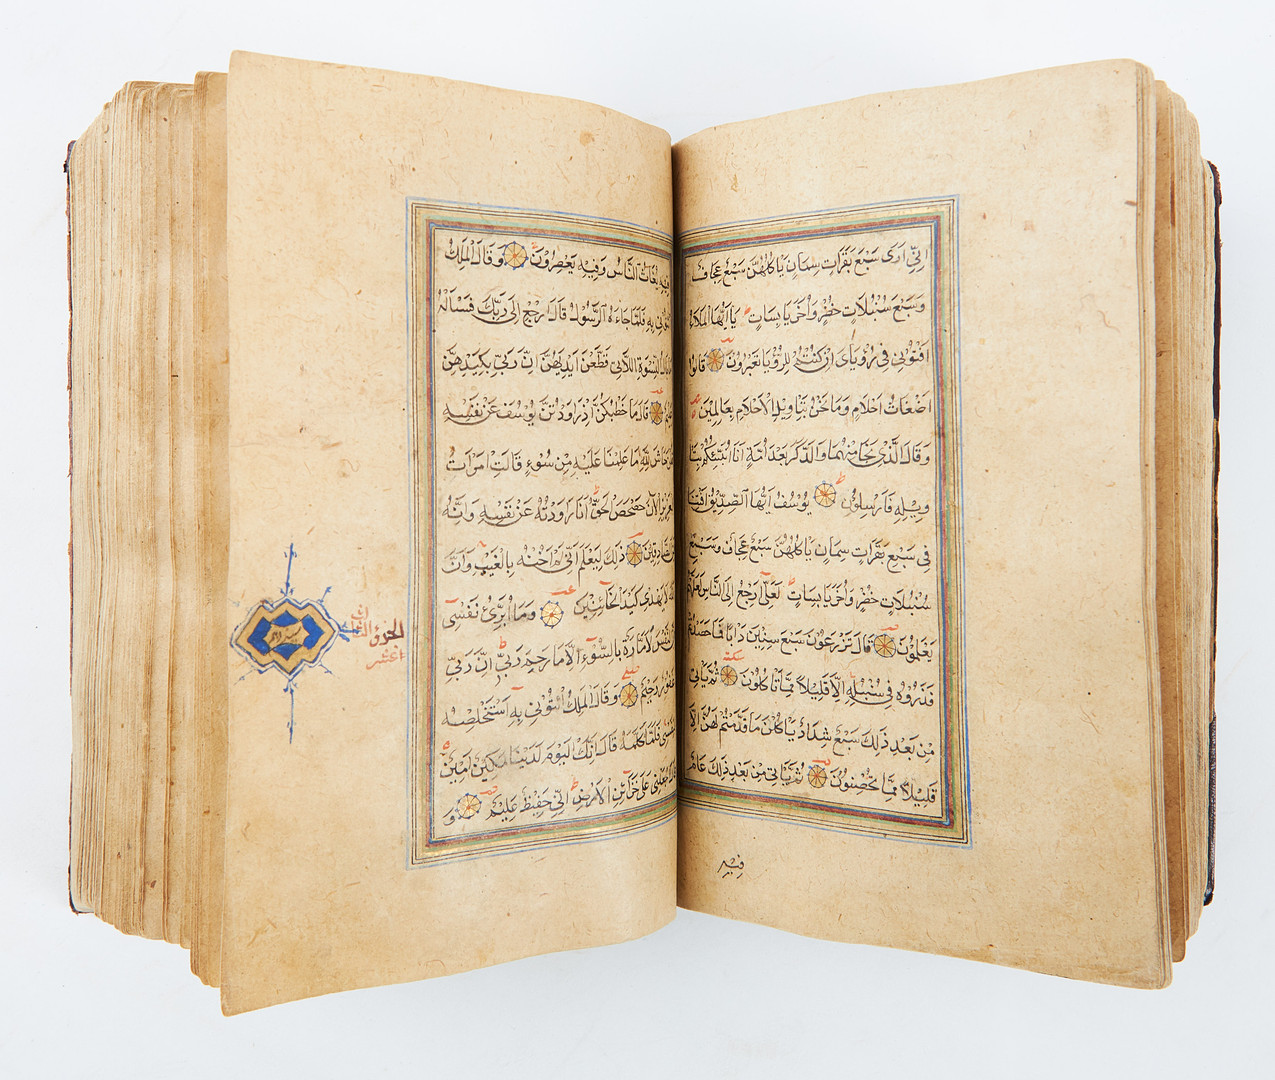 اِنّي اَرى سَبْعَ بَقَراتٍ سِمانٍ يَاكُلُهُنَّ سَبْعٌ عِجافٌ
وَسَبْعَ سُنْبُلاتٍ خُضْرٍ وَاُخَرَ يابِساتٍ يا اَيُّهَا الْمَلَاُ
اَفْتُوني في رُؤْيايَ اِنْ كُنْتُمْ لِلرُّؤْيا تَعْبُرُونَ قالُوا
اَضْغاثُ اَحْلامٍ وَما نَحْنُ بِتَاويلِ الْاَحْلامِ بِعالِمينَ
وَقالَ الَّذي نَجا مِنْهُما وَادَّكَرَ بَعْدَ اُمَّةٍ اَنَا اُنَبِّئُكُمْ بِتَا
ويلِهِ فَاَرْسِلُونِ يُوسُفُ اَيُّهَا الصِّدّيقُ اَفْتِنا
في سَبْعِ بَقَراتٍ سِمانٍ يَاكُلُهُنَّ سَبْعٌ عِجافٌ وَسَبْعِ
سُنْبُلاتٍ خُضْرٍ وَاُخَرَ يابِساتٍ لَعَلّي اَرْجِعُ اِلَى النَّاسِ لَعَلَّهُمْ
يَعْلَمُونَ قالَ تَزْرَعُونَ سَبْعَ سِنينَ دَاَبًا فَما حَصَدْتُمْ
فَذَرُوهُ في سُنْبُلِهِ اِلَّا قَليلًا مِمَّا تَاكُلُونَ ثُمَّ يَاتي
مِنْ بَعْدِ ذلِكَ سَبْعٌ شِدادٌ يَاكُلْنَ ما قَدَّمْتُمْ لَهُنَّ اِلَّا
قَليلًا مِمَّا تُحْصِنُونَ ثُمَّ يَاتي مِنْ بَعْدِ ذلِكَ عامٌ
فيهِ
فيهِ يُغاثُ النَّاسُ وَفيهِ يَعْصِرُونَ وَقالَ الْمَلِكُ
ائْتُوني بِهِ فَلَمَّا جاءَهُ الرَّسُولُ قالَ ارْجِعْ اِلى رَبِّكَ فَسْاَلْهُ
ما بالُ النِّسْوَةِ اللَّاتي قَطَّعْنَ اَيْدِيَهُنَّ اِنَّ رَبّي بِكَيْدِهِنَّ
عَليمٌ قالَ ما خَطْبُكُنَّ اِذْ راوَدْتُنَّ يُوسُفَ عَنْ نَفْسِهِ
قُلْنَ حاشَ لِلّهِ ما عَلِمْنا عَلَيْهِ مِنْ سُوءٍ قالَتِ امْرَاَتُ
الْعَزيزِ الْانَ حَصْحَصَ الْحَقُّ اَنَا راوَدْتُهُ عَنْ نَفْسِهِ وَاِنَّهُ
لَمِنَ الصَّادِقينَ ذلِكَ لِيَعْلَمَ اَنّي لَمْ اَخُنْهُ بِالْغَيْبِ وَاَنَّ
اللّهَ لا يَهْدي كَيْدَ الْخائِنينَ وَما اُبَرِّئُ نَفْسي
اِنَّ النَّفْسَ لَاَمَّارَةٌ بِالسُّوءِ اِلَّا ما رَحِمَ رَبّي اِنَّ رَبّي
غَفُورٌ رَحيمٌ وَقالَ الْمَلِكُ ائْتُوني بِهِ اَسْتَخْلِصْهُ
لِنَفْسي فَلَمَّا كَلَّمَهُ قالَ اِنَّكَ الْيَوْمَ لَدَيْنا مَكينٌ اَمينٌ
قالَ اجْعَلْني عَلى خَزائِنِ الْاَرْضِ اِنّي حَفيظٌ عَليمٌ وَ
الجزؤ
عشر